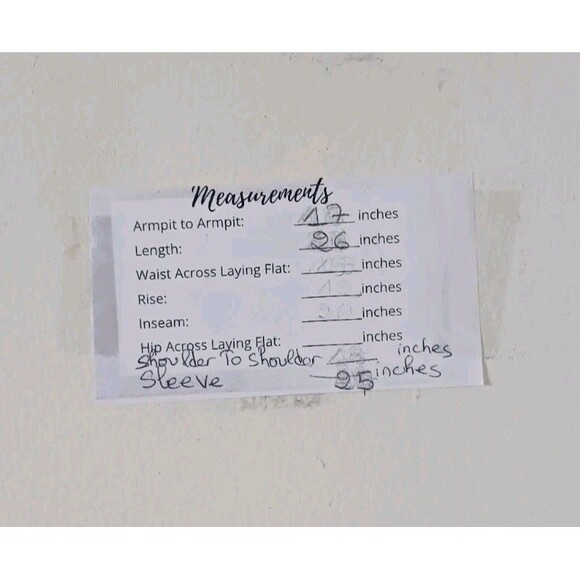 Measurements
Armpit to Armpit: 17 inches
Length: 26 inches
Waist Across Laying Flat: inches
Rise: inches
Inseam: inches
Hip Across Laying Flat: inches
Shoulder To Shoulder inches
Sleeve 25 inches